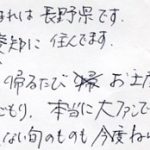 まれは 長野県です.
愛知に 住んでます.
帰るたび お土
ごもり, 本当に大ファンで
ない旬のものも 今度ね